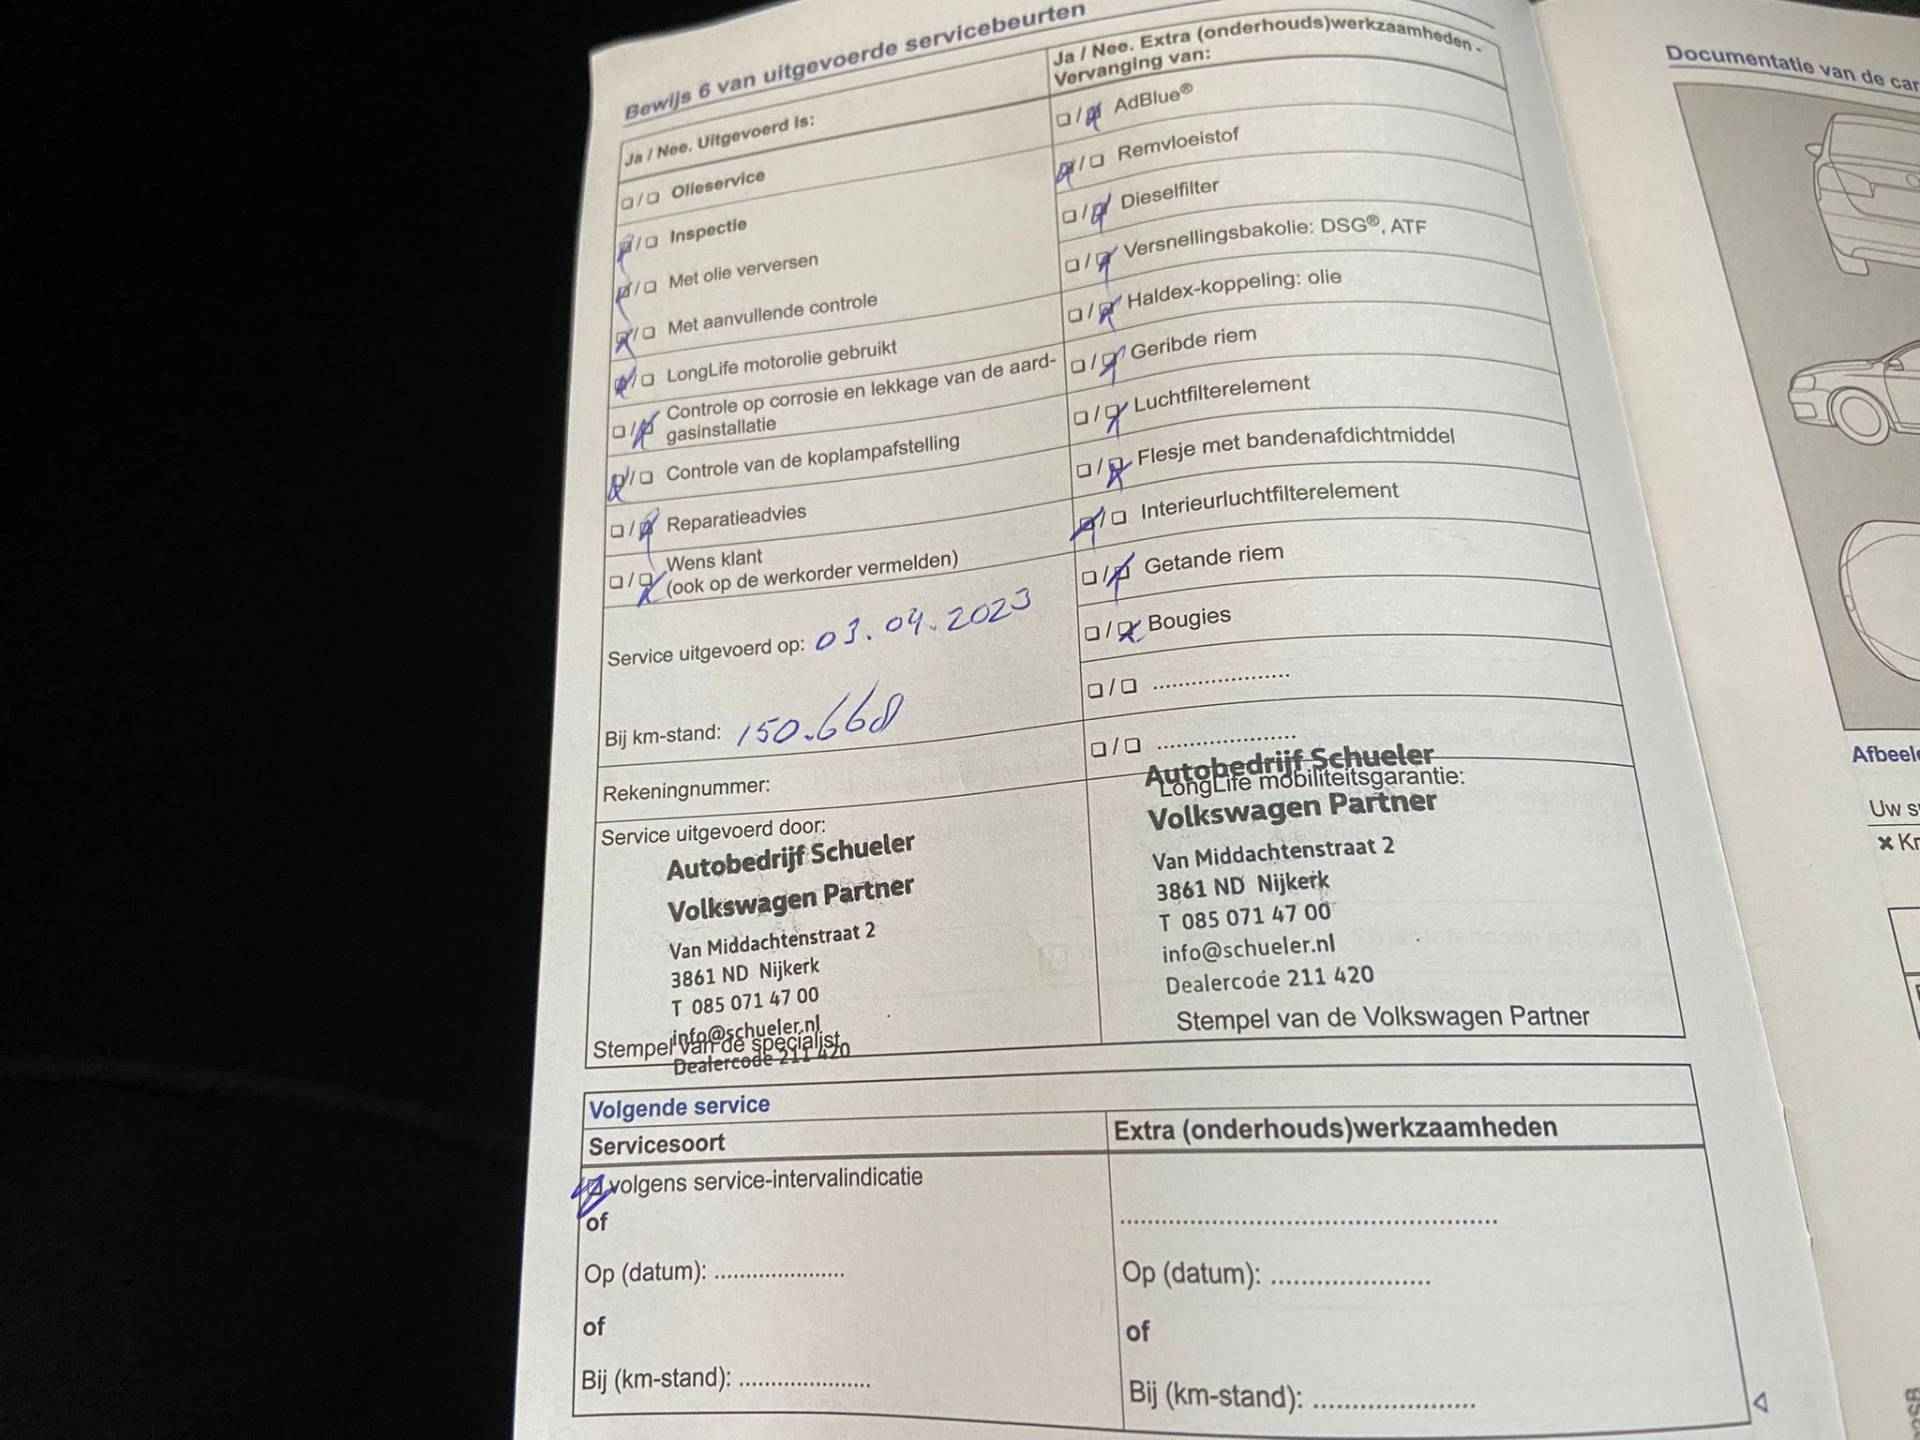 Bewijs 6 van uitgevoerde servicebeurten
Ja / Nee. Uitgevoerd is:
❏ / ❏ Olieservice
❏ / ❏ Inspectie
❏ / ❏ Met olie verversen
❏ / ❏ Met aanvullende controle
❏ / ❏ LongLife motorolie gebruikt
❏ / ❏ Controle op corrosie en lekkage van de aard-
gasinstallatie
❏ / ❏ Controle van de koplampafstelling
❏ / ❏ Reparatieadvies
❏ / ❏ Wens klant
(ook op de werkorder vermelden)
Service uitgevoerd op: 03.04.2023
Bij km-stand: 150.668
Rekeningnummer:
Service uitgevoerd door:
Autobedrijf Schueler
Volkswagen Partner
Van Middachtenstraat 2
3861 ND Nijkerk
T 085 071 47 00
info@schueler.nl
Stempel van de specialist
Dealercode 211 420
Ja / Nee. Extra (onderhouds)werkzaamheden -
Vervanging van:
❏ / ❏ AdBlue®
❏ / ❏ Remvloeistof
❏ / ❏ Dieselfilter
❏ / ❏ Versnellingsbakolie: DSG®, ATF
❏ / ❏ Haldex-koppeling: olie
❏ / ❏ Geribde riem
❏ / ❏ Luchtfilterelement
❏ / ❏ Flesje met bandenafdichtmiddel
❏ / ❏ Interieurluchtfilterelement
❏ / ❏ Getande riem
❏ / ❏ Bougies
❏ / ❏ .....................
❏ / ❏ .....................
Autobedrijf Schueler
LongLife mobiliteitsgarantie:
Volkswagen Partner
Van Middachtenstraat 2
3861 ND Nijkerk
T 085 071 47 00
info@schueler.nl
Dealercode 211 420
Stempel van de Volkswagen Partner
Volgende service
Servicesoort
❏ volgens service-intervalindicatie
of
Op (datum): ....................
of
Bij (km-stand): ....................
Extra (onderhouds)werkzaamheden
.......................................................
Op (datum): ......................
of
Bij (km-stand): ......................
Documentatie van de car
Afbeel
Uw s
✖ Kr